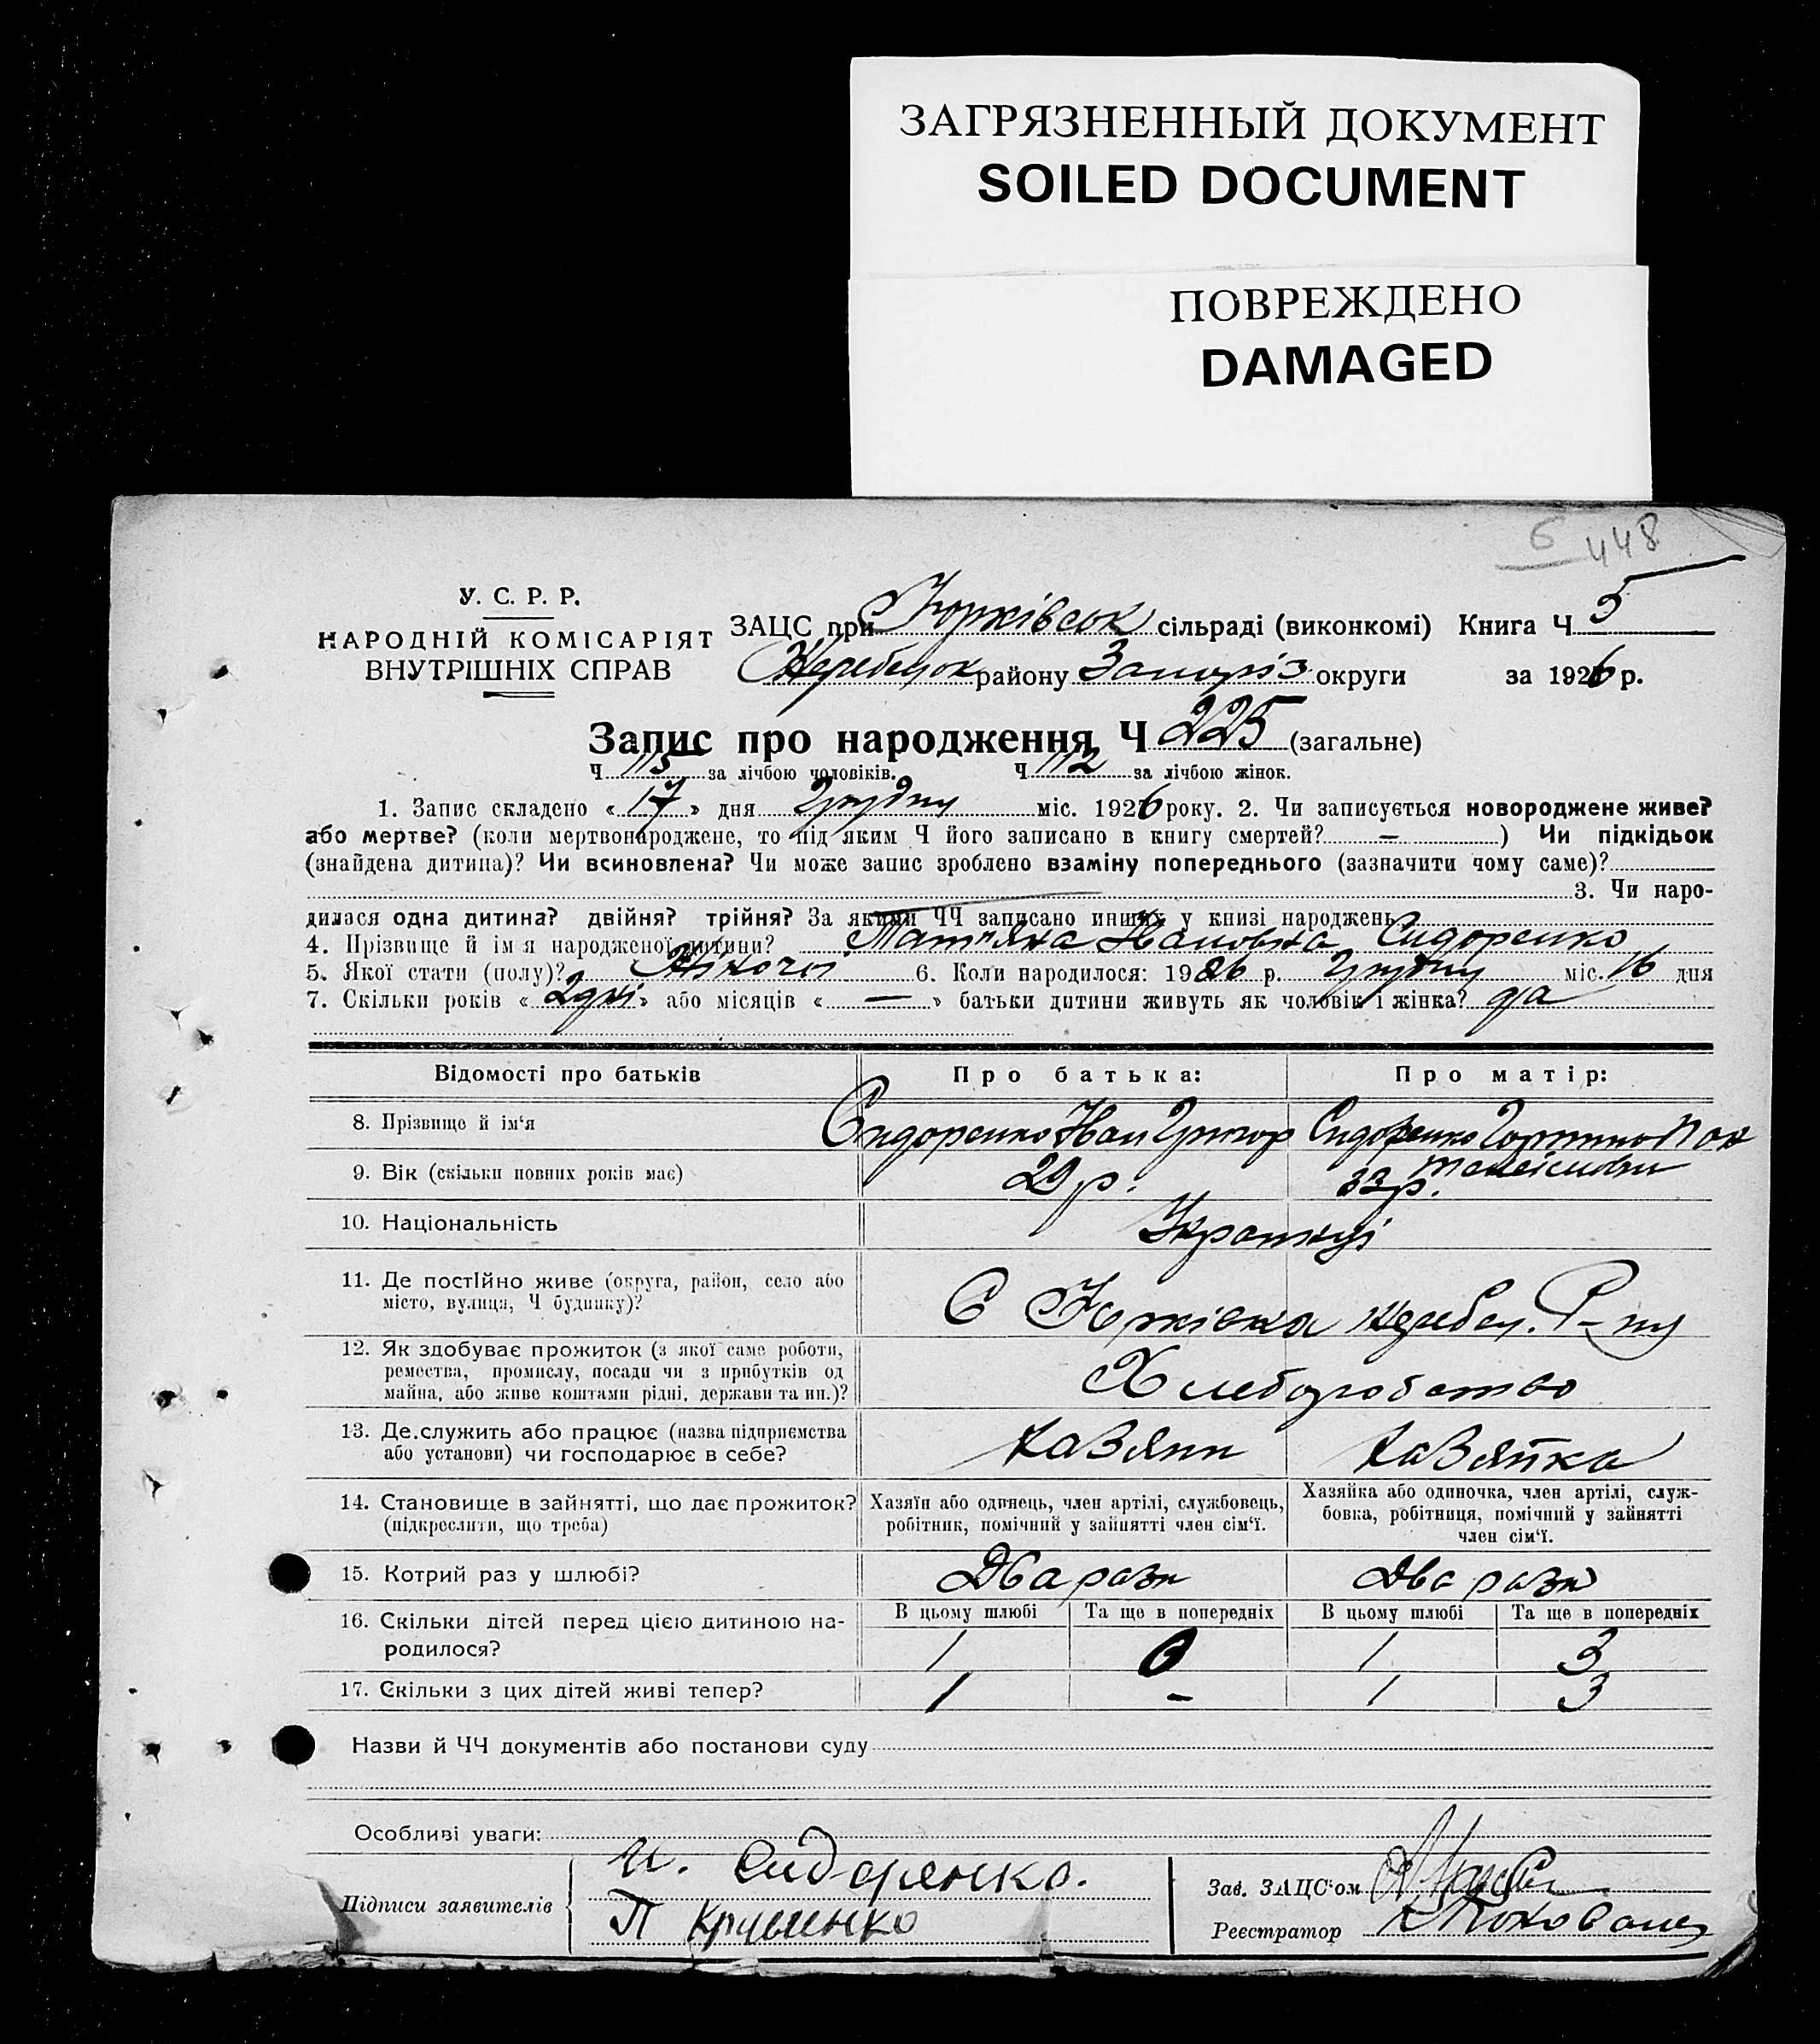 ЗАГРЯЗНЕННЫЙ ДОКУМЕНТ
SOILED DOCUMENT
ПОВРЕЖДЕНО
DAMAGED
6 448
У. С. Р. Р.
НАРОДНІЙ КОМІСАРІЯТ
ВНУТРІШНІХ СПРАВ
ЗАЦС при Юрківськ сільраді (виконкомі) Книга Ч 5
Жеребецьк району Запоріз округи за 1926 р.
Запис про народження Ч 225 (загальне)
Ч 113 за лічбою чоловіків. Ч 112 за лічбою жінок.
1. Запис складено « 17 » дня Грудну міс. 1926 року. 2. Чи записується новороджене живе?
або мертве? (коли мертвонароджене, то під яким Ч його записано в книгу смертей? — ) Чи підкідьок
(знайдена дитина)? Чи всиновлена? Чи може запис зроблено взаміну попереднього (зазначити чому саме)?
3. Чи наро-
дилася одна дитина? двійня? трійня? За якими ЧЧ записано инших у книзі народжень
4. Прізвище й ім'я народженої дитини? Тат"яна Йановна Сидоренко
5. Якої стати (полу)? Жіночої 6. Коли народилося: 1926 р. Грудну міс. 16 дня
7. Скільки років « 2 роkі » або місяців « — » батьки дитини живуть як чоловік і жінка? да
Відомості про батьків
Про батька:
Про матір:
8. Прізвище й ім'я Сидоренко Йван Григор Сидоренко
9. Вік (скільки повних років має) 29 р. 33 р.
10. Національність Українці
11. Де постійно живе (округа, район, село або
місто, вулиця, Ч будинку)? С Юрківка Жеребец. Р-ну
12. Як здобуває прожиток (з якої саме роботи,
ремества, промислу, посади чи з прибутків од
майна, або живе коштами рідні, держави та ин.)? Хлеборобство
13. Де служить або працює (назва підприємства
або установи) чи господарює в себе? хазяин хазяйка
14. Становище в зайнятті, що дає прожиток?
(підкреслити, що треба)
Хазяїн або одинець, член артілі, службовець,
робітник, помічний у зайнятті член сім'ї.
Хазяйка або одиночка, член артілі, служ-
бовка, робітниця, помічний у зайнятті
член сім'ї.
15. Котрий раз у шлюбі? Два рази Два рази
В цьому шлюбі Та ще в попередніх В цьому шлюбі Та ще в попередніх
16. Скільки дітей перед цією дитиною на-
родилося? 1 0 1 3
17. Скільки з цих дітей живі тепер? 1 – 1 3
Назви й ЧЧ документів або постанови суду
Особливі уваги:
Підписи заявителів
И. Сидорянко.
П Крушенко
Зав. ЗАЦС'ом
Реєстратор